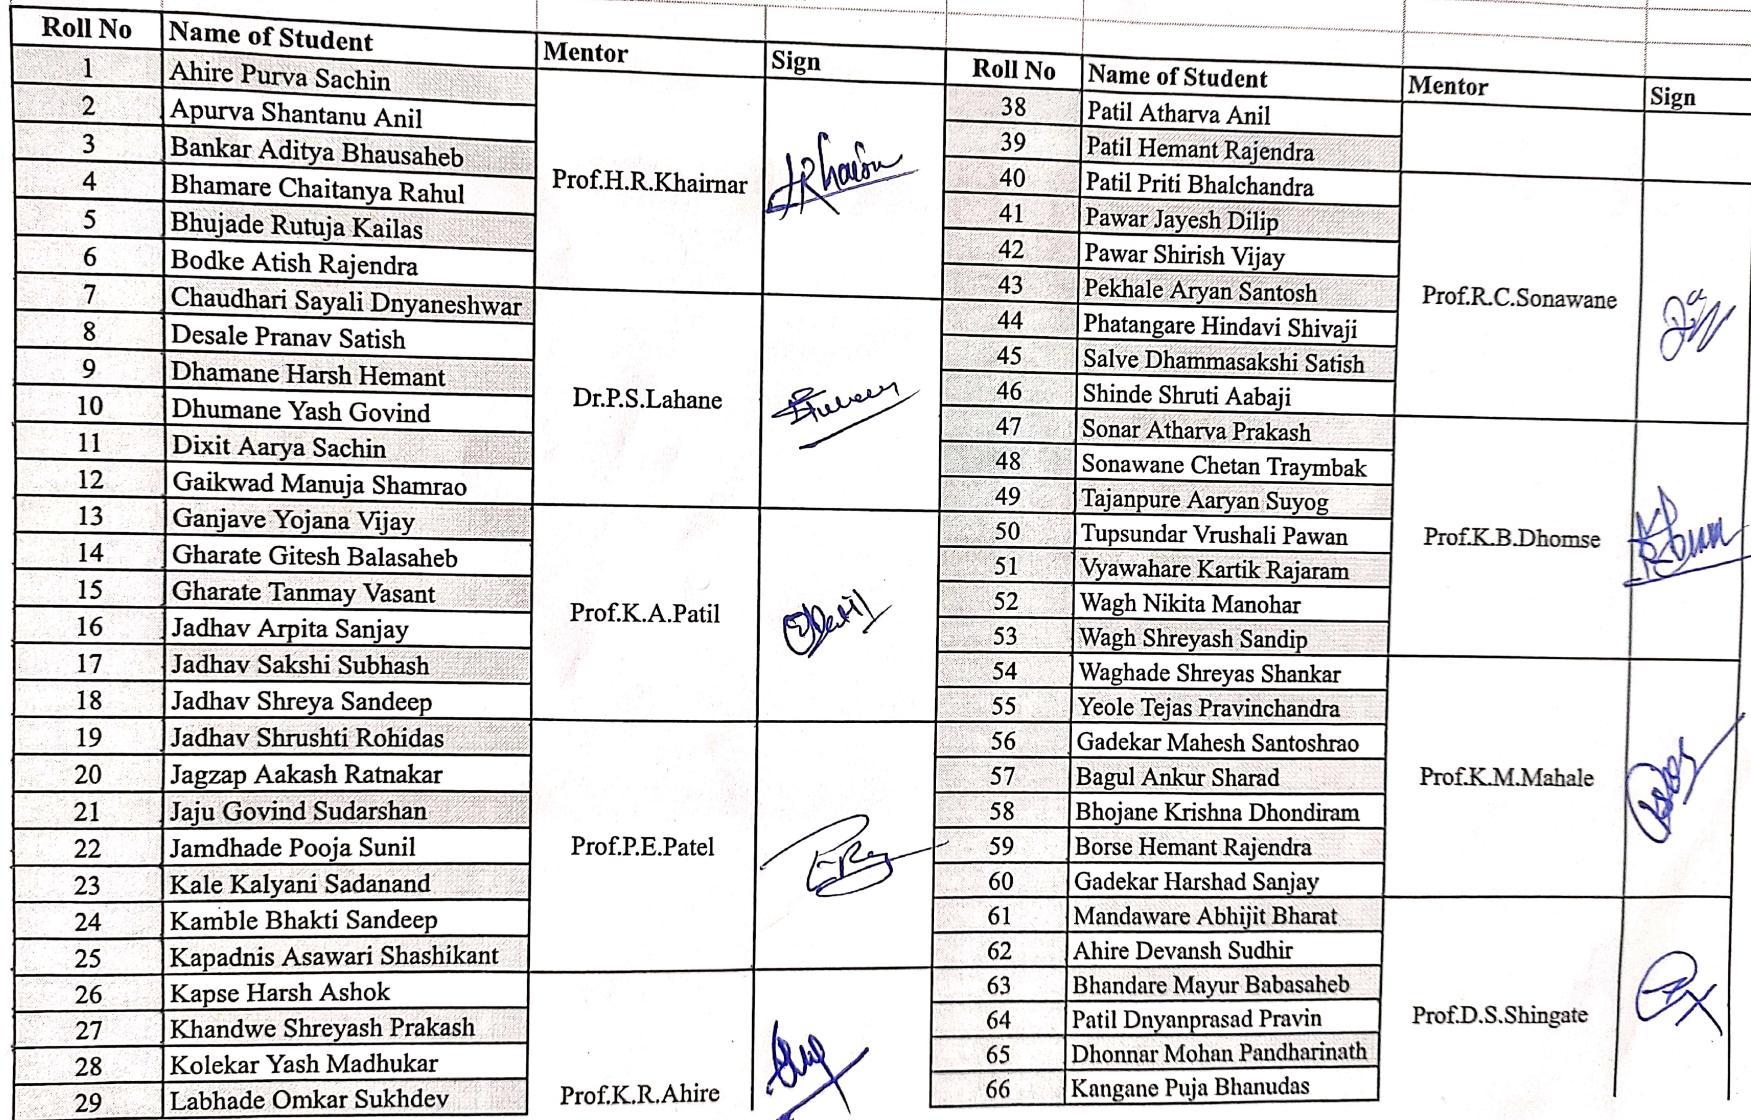 Roll No Name of Student Mentor Sign
1 Ahire Purva Sachin
2 Apurva Shantanu Anil
3 Bankar Aditya Bhausaheb
4 Bhamare Chaitanya Rahul
Prof.H.R.Khairnar
5 Bhujade Rutuja Kailas
6 Bodke Atish Rajendra
7 Chaudhari Sayali Dnyaneshwar
8 Desale Pranav Satish
9 Dhamane Harsh Hemant
10 Dhumane Yash Govind
Dr.P.S.Lahane
11 Dixit Aarya Sachin
12 Gaikwad Manuja Shamrao
13 Ganjave Yojana Vijay
14 Gharate Gitesh Balasaheb
15 Gharate Tanmay Vasant
Prof.K.A.Patil
16 Jadhav Arpita Sanjay
17 Jadhav Sakshi Subhash
18 Jadhav Shreya Sandeep
19 Jadhav Shrushti Rohidas
20 Jagzap Aakash Ratnakar
21 Jaju Govind Sudarshan
22 Jamdhade Pooja Sunil
Prof.P.E.Patel
23 Kale Kalyani Sadanand
24 Kamble Bhakti Sandeep
25 Kapadnis Asawari Shashikant
26 Kapse Harsh Ashok
27 Khandwe Shreyash Prakash
28 Kolekar Yash Madhukar
29 Labhade Omkar Sukhdev
Prof.K.R.Ahire
Roll No Name of Student Mentor Sign
38 Patil Atharva Anil
39 Patil Hemant Rajendra
40 Patil Priti Bhalchandra
41 Pawar Jayesh Dilip
42 Pawar Shirish Vijay
43 Pekhale Aryan Santosh
Prof.R.C.Sonawane
44 Phatangare Hindavi Shivaji
45 Salve Dhammasakshi Satish
46 Shinde Shruti Aabaji
47 Sonar Atharva Prakash
48 Sonawane Chetan Traymbak
49 Tajanpure Aaryan Suyog
50 Tupsundar Vrushali Pawan
Prof.K.B.Dhomse
51 Vyawahare Kartik Rajaram
52 Wagh Nikita Manohar
53 Wagh Shreyash Sandip
54 Waghade Shreyas Shankar
55 Yeole Tejas Pravinchandra
56 Gadekar Mahesh Santoshrao
57 Bagul Ankur Sharad
Prof.K.M.Mahale
58 Bhojane Krishna Dhondiram
59 Borse Hemant Rajendra
60 Gadekar Harshad Sanjay
61 Mandaware Abhijit Bharat
62 Ahire Devansh Sudhir
63 Bhandare Mayur Babasaheb
64 Patil Dnyanprasad Pravin
Prof.D.S.Shingate
65 Dhonnar Mohan Pandharinath
66 Kangane Puja Bhanudas